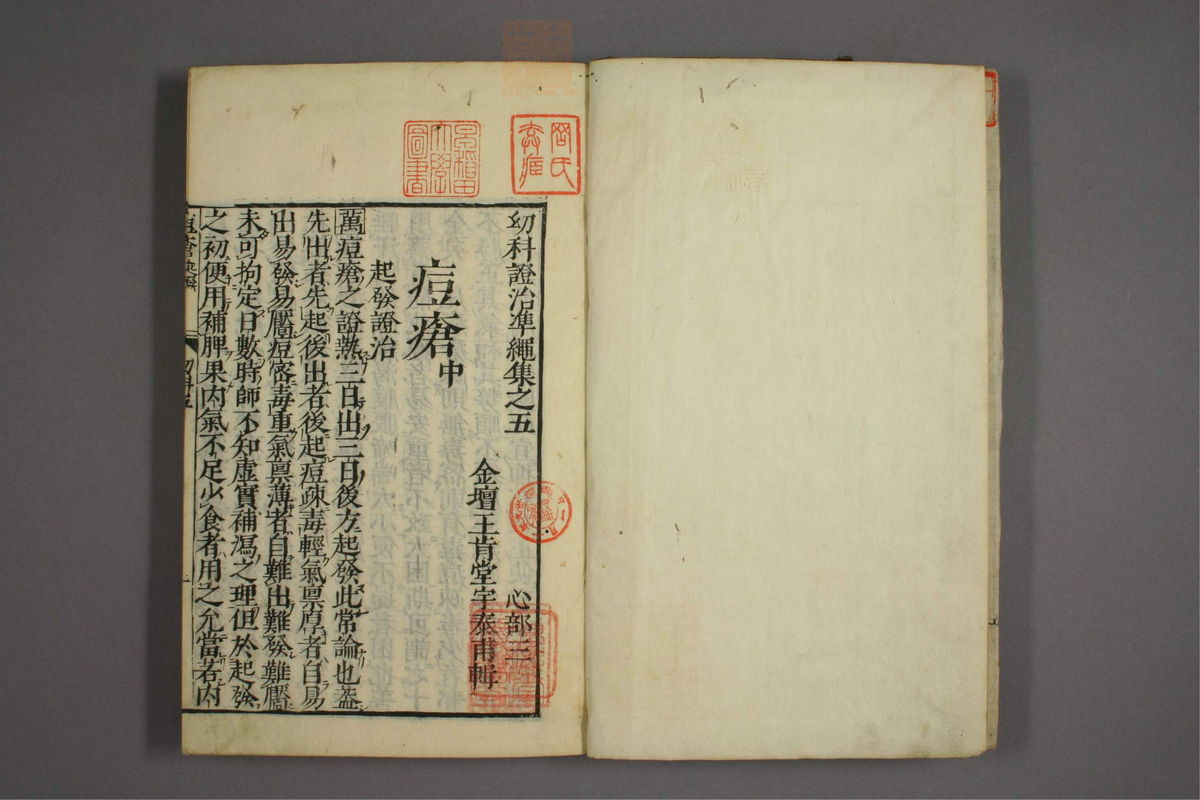 幼科證治準繩集之五　心部三
金壇王肯堂宇泰甫輯
痘瘡中
起發證治
萬痘瘡之證熱三日出三日後方起發此常論也蓋
先出者先起後出者後起痘疎毒輕氣禀厚者自易
出易發易靨痘密毒重氣禀薄者自難出難發難靨
未可拘定日數時師不知虛實補瀉之理但於起發
之初便用補脾果内氣不足少食者用之允當若内
早稲田大學圖書